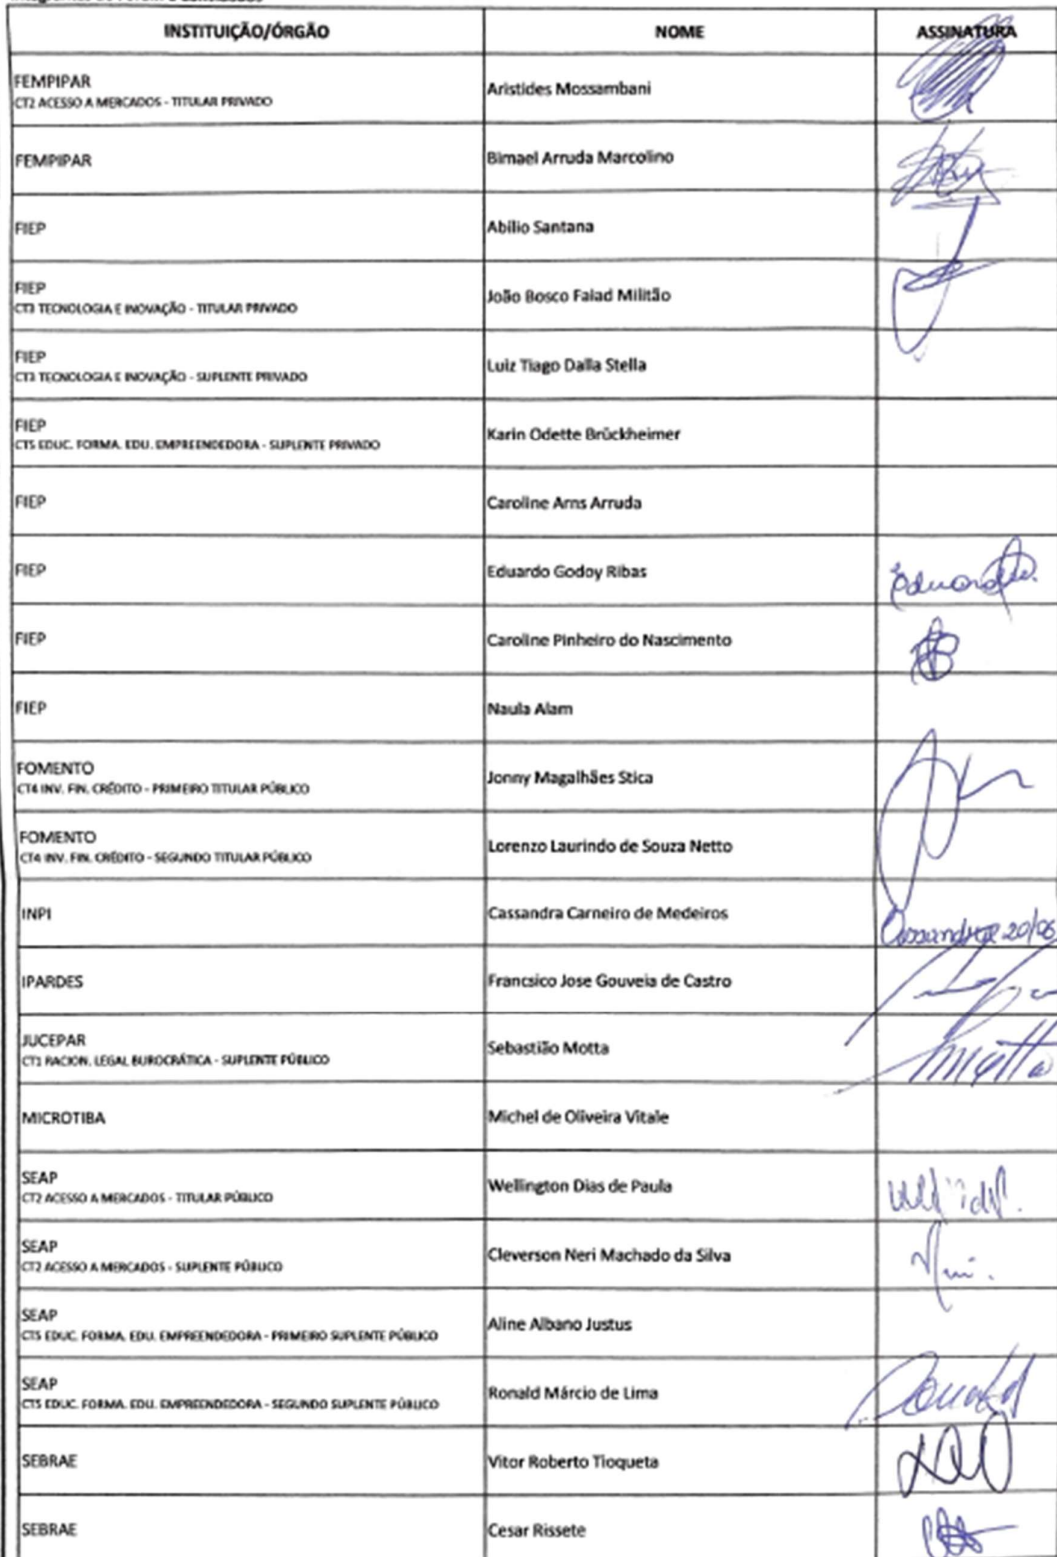 INSTITUIÇÃO/ÓRGÃO NOME ASSINATURA
FEMPIPAR
CT2 ACESSO A MERCADOS - TITULAR PRIVADO
Aristides Mossambani
FEMPIPAR
Bimael Arruda Marcolino
FIEP
Abílio Santana
FIEP
CT3 TECNOLOGIA E INOVAÇÃO - TITULAR PRIVADO
João Bosco Faiad Militão
FIEP
CT3 TECNOLOGIA E INOVAÇÃO - SUPLENTE PRIVADO
Luiz Tiago Dalla Stella
FIEP
CT5 EDUC. FORMA. EDU. EMPREENDEDORA - SUPLENTE PRIVADO
Karin Odette Brückheimer
FIEP
Caroline Arns Arruda
FIEP
Eduardo Godoy Ribas
FIEP
Caroline Pinheiro do Nascimento
FIEP
Naula Alam
FOMENTO
CT4 INV. FIN. CRÉDITO - PRIMEIRO TITULAR PÚBLICO
Jonny Magalhães Stica
FOMENTO
CT4 INV. FIN. CRÉDITO - SEGUNDO TITULAR PÚBLICO
Lorenzo Laurindo de Souza Netto
INPI
Cassandra Carneiro de Medeiros
20/06
IPARDES
Francsico Jose Gouveia de Castro
JUCEPAR
CT1 RACION. LEGAL BUROCRÁTICA - SUPLENTE PÚBLICO
Sebastião Motta
MICROTIBA
Michel de Oliveira Vitale
SEAP
CT2 ACESSO A MERCADOS - TITULAR PÚBLICO
Wellington Dias de Paula
SEAP
CT2 ACESSO A MERCADOS - SUPLENTE PÚBLICO
Cleverson Neri Machado da Silva
SEAP
CT5 EDUC. FORMA. EDU. EMPREENDEDORA - PRIMEIRO SUPLENTE PÚBLICO
Aline Albano Justus
SEAP
CT5 EDUC. FORMA. EDU. EMPREENDEDORA - SEGUNDO SUPLENTE PÚBLICO
Ronald Márcio de Lima
SEBRAE
Vitor Roberto Tioqueta
SEBRAE
Cesar Rissete